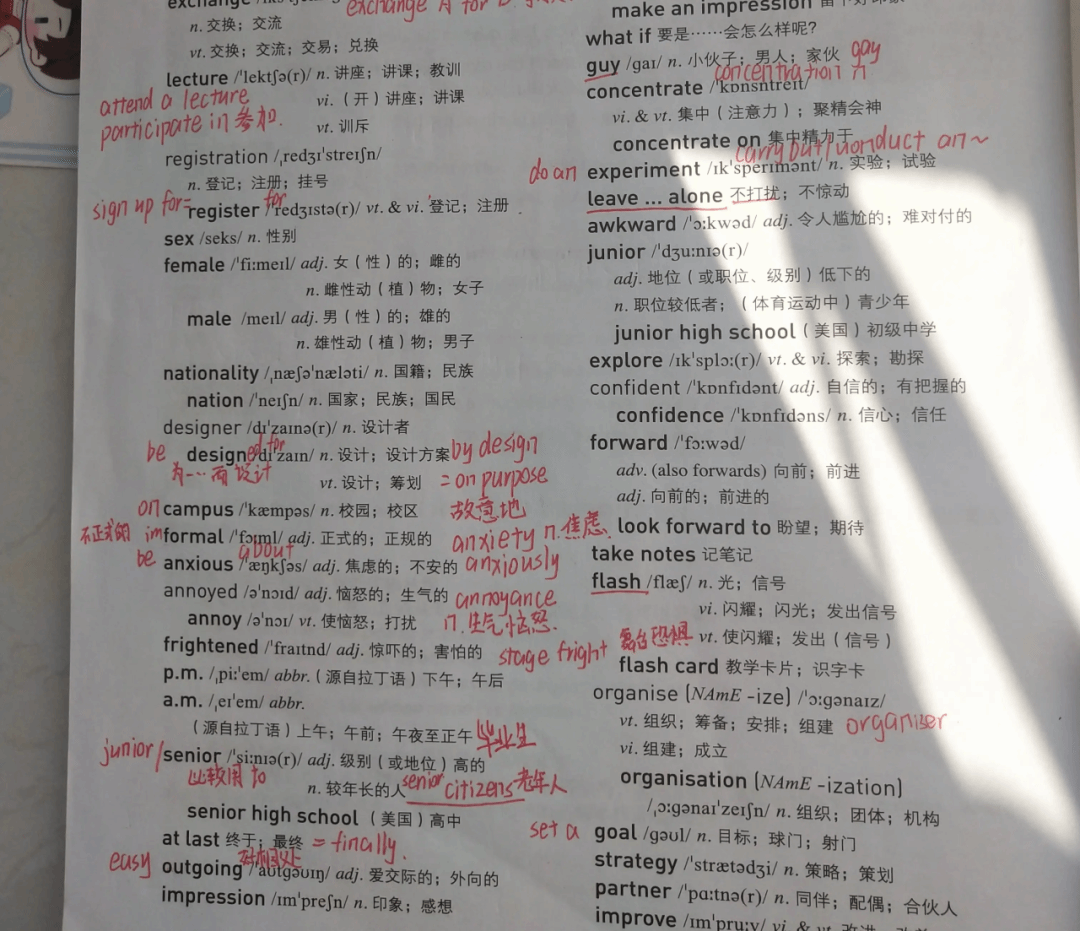 exchange A for B
n. 交换；交流
vt. 交换；交流；交易；兑换
lecture /ˈlektʃə(r)/ n. 讲座；讲课；教训
attend a lecture
vi.（开）讲座；讲课
participate in 参加.
vt. 训斥
registration /ˌredʒɪˈstreɪʃn/
n. 登记；注册；挂号
sign up for= register for /ˈredʒɪstə(r)/ vt. & vi. 登记；注册
sex /seks/ n. 性别
female /ˈfiːmeɪl/ adj. 女（性）的；雌的
n. 雌性动（植）物；女子
male /meɪl/ adj. 男（性）的；雄的
n. 雄性动（植）物；男子
nationality /ˌnæʃəˈnæləti/ n. 国籍；民族
nation /ˈneɪʃn/ n. 国家；民族；国民
designer /dɪˈzaɪnə(r)/ n. 设计者
be designed for /dɪˈzaɪn/ n. 设计；设计方案 by design
为……而设计
vt. 设计；筹划 = on purpose
on campus /ˈkæmpəs/ n. 校园；校区 故意地
不正式的 im formal /ˈfɔːml/ adj. 正式的；正规的 anxiety n.焦虑.
be anxious about /ˈæŋkʃəs/ adj. 焦虑的；不安的 anxiously
annoyed /əˈnɔɪd/ adj. 恼怒的；生气的 annoyance
annoy /əˈnɔɪ/ vt. 使恼怒；打扰 n.生气恼怒.
frightened /ˈfraɪtnd/ adj. 惊吓的；害怕的 stage fright 舞台恐惧
p.m. /ˌpiːˈem/ abbr.（源自拉丁语）下午；午后
a.m. /ˌeɪˈem/ abbr.
（源自拉丁语）上午；午前；午夜至正午 毕业生
junior/ senior /ˈsiːnɪə(r)/ adj. 级别（或地位）高的
比较用 to
n. 较年长的人 senior citizens 老年人
senior high school （美国）高中
at last 终于；最终 = finally.
easy outgoing /ˈaʊtɡəʊɪŋ/ adj. 爱交际的；外向的
impression /ɪmˈpreʃn/ n. 印象；感想
make an impression
what if 要是……会怎么样呢?
guy /ɡaɪ/ n. 小伙子；男人；家伙 gay
concentration n
concentrate /ˈkɒnsntreɪt/
vi. & vt. 集中（注意力）；聚精会神
concentrate on 集中精力于
carry out/conduct an ~
do an experiment /ɪkˈsperɪmənt/ n. 实验；试验
leave ... alone 不打扰；不惊动
awkward /ˈɔːkwəd/ adj. 令人尴尬的；难对付的
junior /ˈdʒuːnɪə(r)/
adj. 地位（或职位、级别）低下的
n. 职位较低者；（体育运动中）青少年
junior high school（美国）初级中学
explore /ɪkˈsplɔː(r)/ vt. & vi. 探索；勘探
confident /ˈkɒnfɪdənt/ adj. 自信的；有把握的
confidence /ˈkɒnfɪdəns/ n. 信心；信任
forward /ˈfɔːwəd/
adv. (also forwards) 向前；前进
adj. 向前的；前进的
look forward to 盼望；期待
take notes 记笔记
flash /flæʃ/ n. 光；信号
vi. 闪耀；闪光；发出信号
vt. 使闪耀；发出（信号）
flash card 教学卡片；识字卡
organise (NAmE -ize) /ˈɔːɡənaɪz/
vt. 组织；筹备；安排；组建 organiser
vi. 组建；成立
organisation (NAmE -ization)
/ˌɔːɡənaɪˈzeɪʃn/ n. 组织；团体；机构
set a goal /ɡəʊl/ n. 目标；球门；射门
strategy /ˈstrætədʒi/ n. 策略；策划
partner /ˈpɑːtnə(r)/ n. 同伴；配偶；合伙人
improve /ɪmˈpruːv/ vi. & vt.